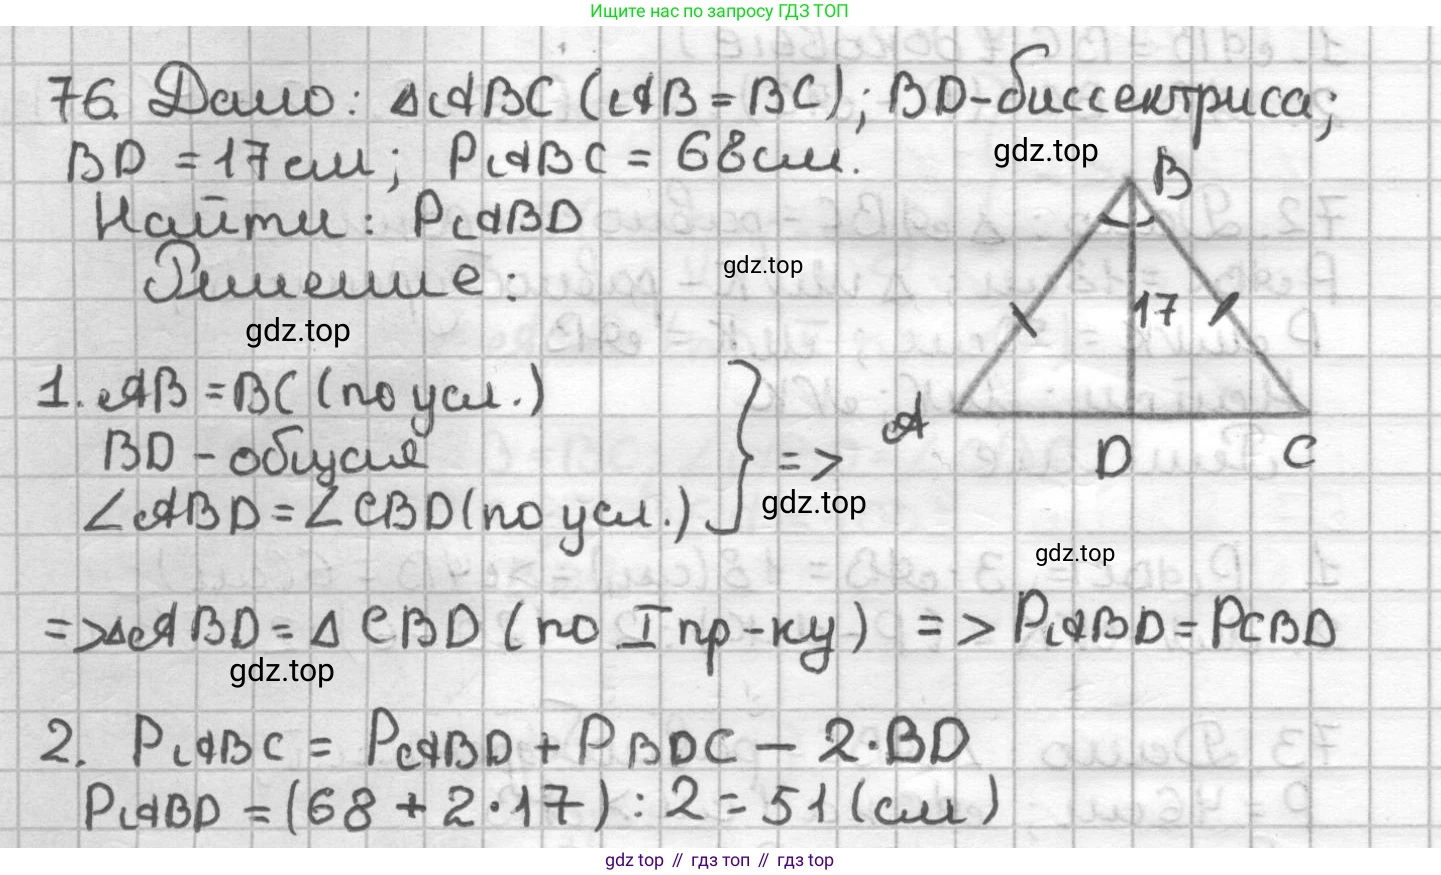 Ищите нас по запросу ГДЗ ТОП
76. Дано: ΔABC (AB = BC); BD - биссектриса;
BD = 17 см; PABC = 68 см.
gdz.top
Найти: PABD
Решение:
gdz.top
gdz.top
B
17
A
D
C
1. AB = BC (по усл.)
BD - общая
∠ABD = ∠CBD (по усл.)
} =>
gdz.top
gdz.top
=> ΔABD = Δ CBD (по I пр-ку) => PABD = PCBD
gdz.top
2. PABC = PABD + PBDC - 2·BD
PABD = (68 + 2·17) : 2 = 51 (см)
gdz top // гдз топ // gdz top